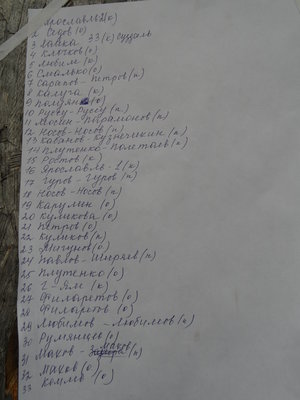 Ярославль(к)
2 Седов (о)
3 Лайка 33(к) Суздаль
4 Клочков(о)
5 Любим (к)
6 Смалько(о)
7 Сарапов - Петров(п)
8 Калуча (к)
9 (о)
10 Руссу-Руссу(п)
11 Мосин - Парамонов(п)
12 Носов-Носов(п)
13 Кабанов-Кузнечихин(п)
14 Плутенко-Полетаев(п)
15 Ростов (к)
16 Ярославль-1(к)
17 Гуров - Гуров (п)
18 Носов-Носов(п)
19 Карулин (о)
20 Куликова (о)
21 Петров(о)
22 Куликов(п)
23 Мигунов(о)
24 Павлов-Ширяев(п)
25 Плутенко(о)
26 Г-Ям (к)
27 Филаретов(о)
28 Филаретов (о)
29 Любимов-Любимов(п)
30 Румянцев(о)
31 Махов - Махов (п)
32 Махов(о)
33 Комлев (о)